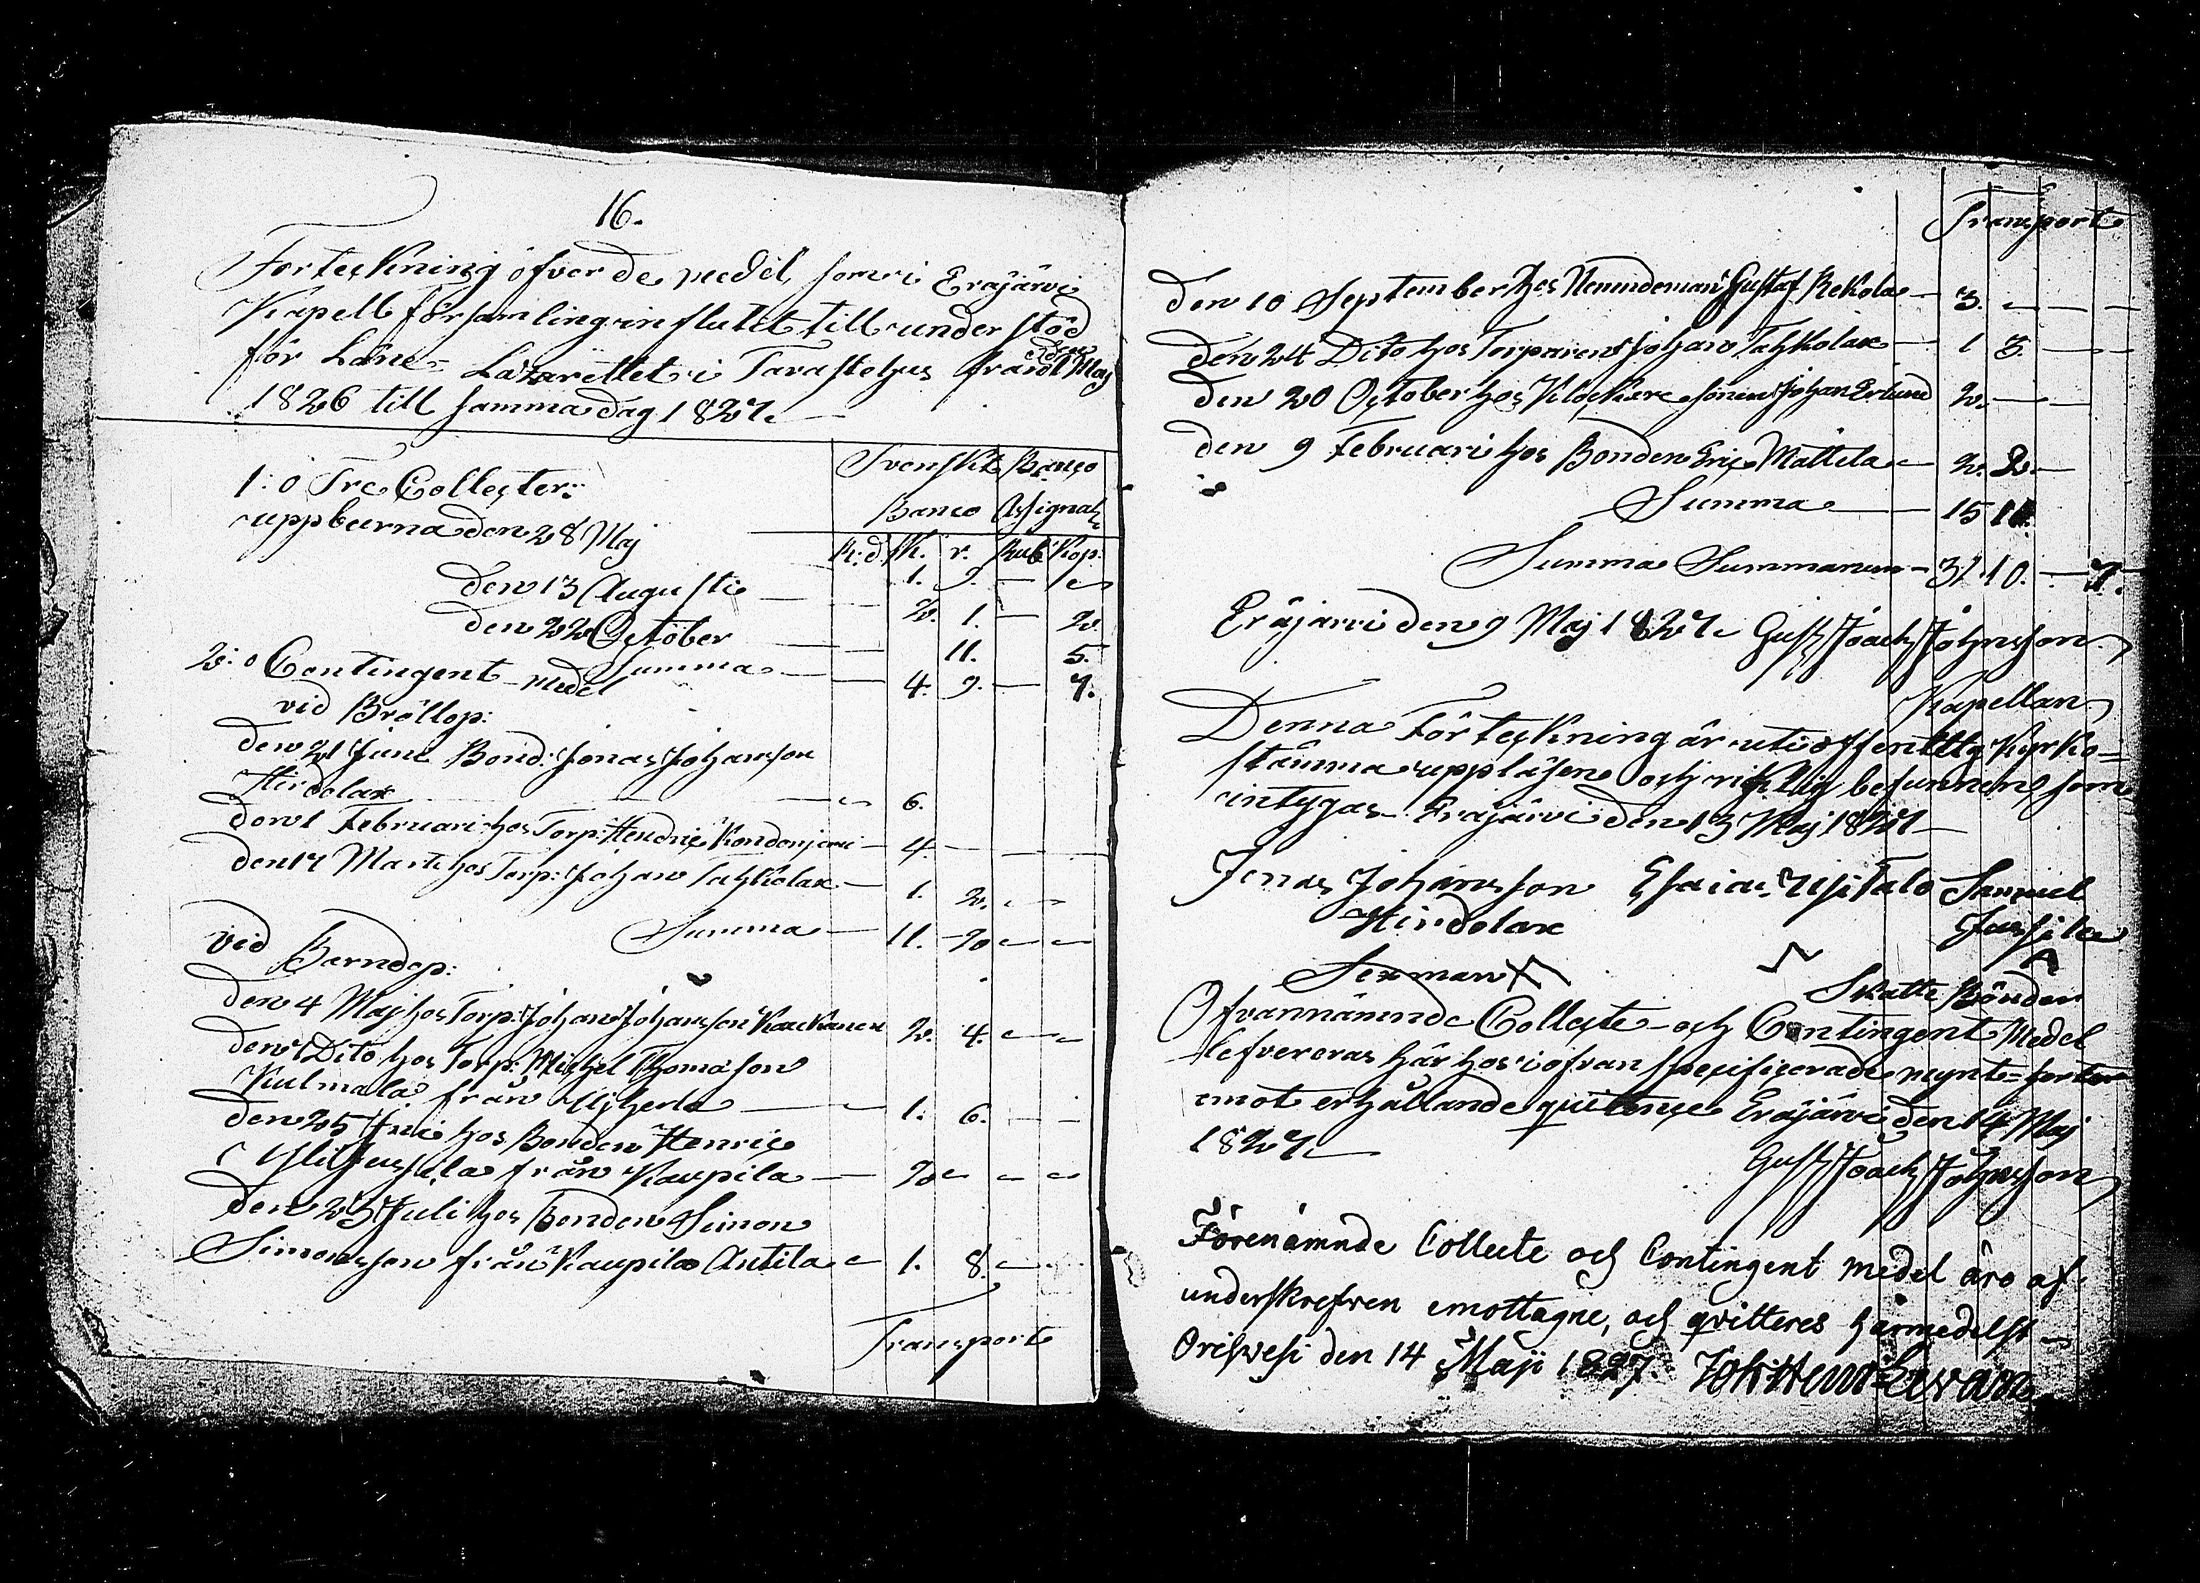 16.
Forteckning öfver de medel, som i Eräjärvi
Kapell församling influtit till under stöd
för Läne-Lazarettet i Tavastehus från den 1 Maj
1826 till samma dag 1827.
Svenskt Banco
Banco Assignat:
R:d. sk. r. Rub: Kop:
1:o Tre Collecter:
uppburna den 28 Maj 1. 9. —
den 13 Augusti — 2. 1. — 2.
den 22 October — 11. 5.
Summa — 4. 9. — 7.
2:o Contingent-medel
vid Bröllop:
den 21 Juni Bond: Jonas Johansson
Hirdolax — 6.
den 1 Februari hos Torp: Hendric Kondenjervi — 4. — — —
den 17 Marti hos Torp: Johan Tahkolax — 1. 2. — —
Summa — 11. 2. — —
vid Barndop:
den 4 Maj hos Torp: Johan Johansson 2. 4. — —
den Dito hos Torp: Michel Thomason
Kulmala från — 1. 6. — —
den 25 Juni hos Bonden Henric
från Kaupila — 2. — — —
den 23 Juli hos Bonden Simon
Simonsson från Kaupila Antila — 1. 8. —
Transport
Transport
den 10 September hos Nemndeman Gustaf Rekola — 3. — — —
den 24 Dito hos Torparen Johan Tahkolax — 1 3. — —
den 20 October hos Klockare sonen Johan Erlund 2. — —
den 9 Februari hos Bonden Eric Mattila — 2. 2. —
Summa — 15 11.
Summa Summarum — 31. 10. — 7.
Eräjärvi den 9 Maj 1827. Gust. Joach. Johnsson
Kapellan
Denna Förteckning är uti offentlig Kyrko-
stämma uppläsen och riktig befunnen, som
intygas. Eräjärvi den 13 Maj 1827
Jonas Johansson Esaias Usitalo Samuel
Hirdolax Jussila
Sexman Skatte Bönder
Ofvannämnde Collecte- och Contingent Medel
lefvereras här hos i ofvan specificerade mynt-sorter
emot erhållande quitence Eräjärvi den 14 Maj
1827. Gust. Joach. Johnsson
Förenämnde Collecte och Contingent medel äro af
underskrefven emottagne, och qvitteres härmedelst
Orihvesi den 14 Maji 1827. Joh: Henr: